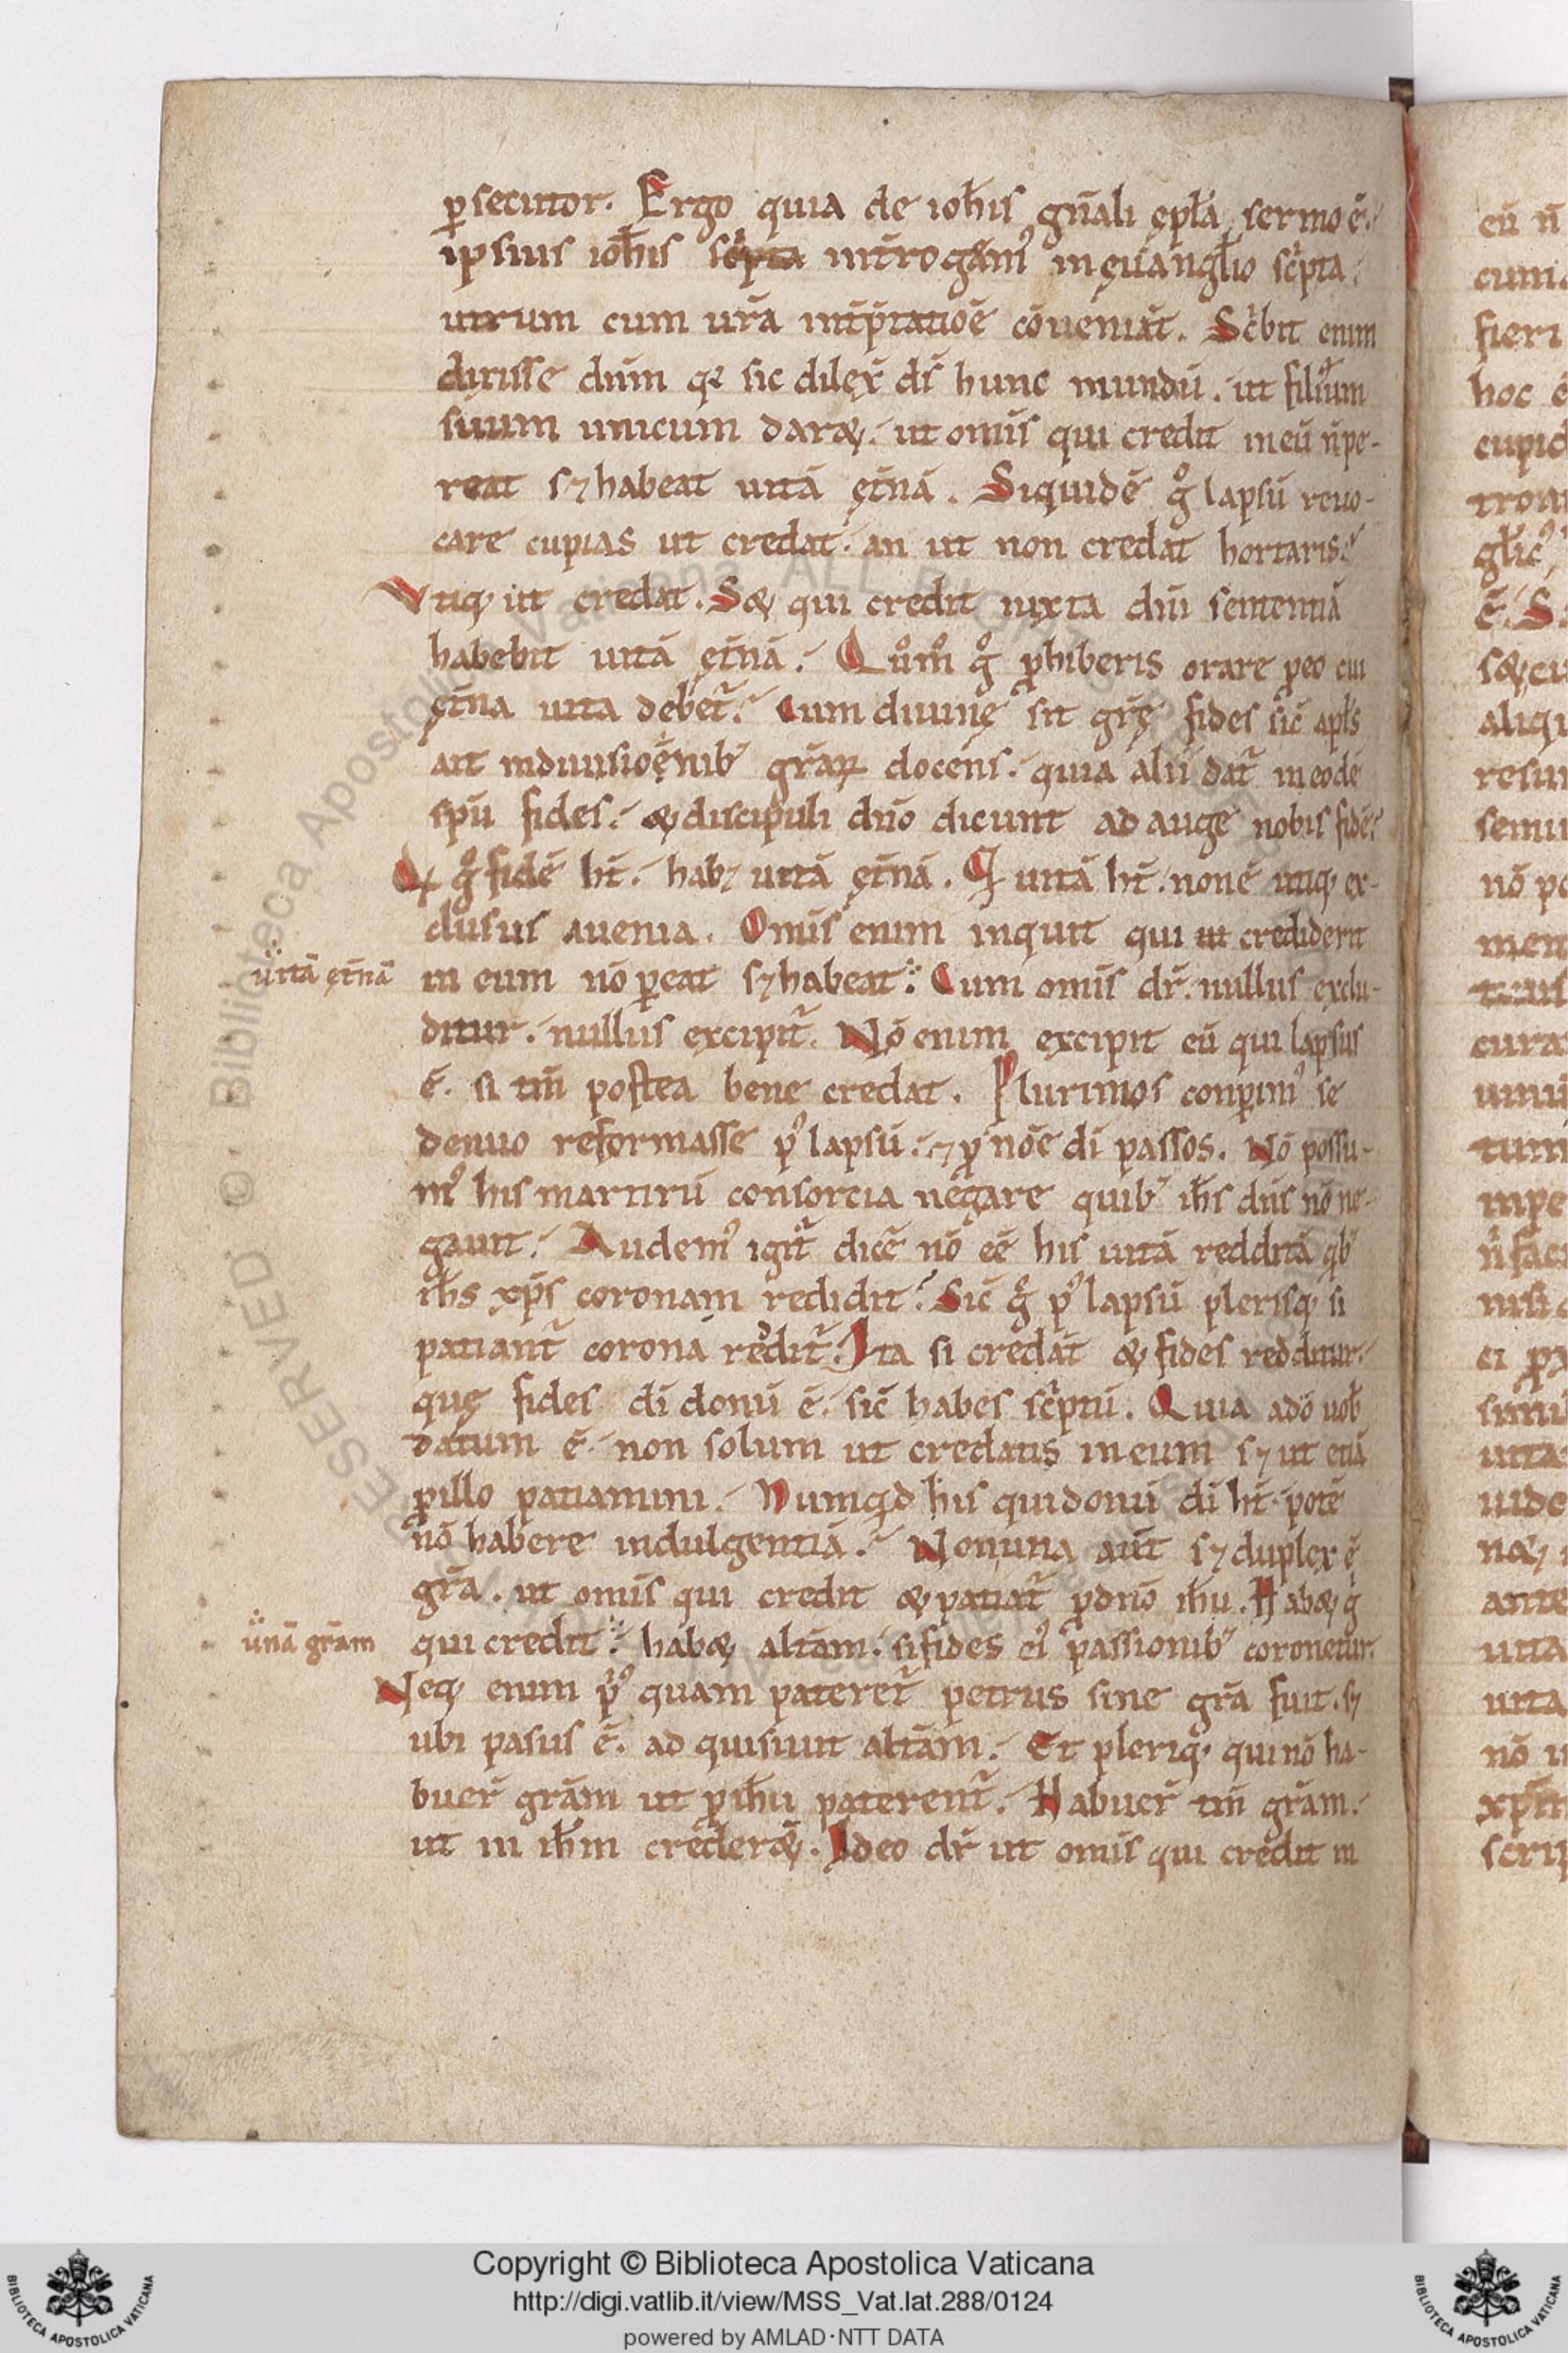 ꝑsecutor. Ergo quia de ioħis gn̄ali ępła sermo ē.
ipsius ioħis sc̓pta int̄rogam᷒ in ęuangl̄io sc̓pta.
utrum cum ur̄a int̄p̄tatioē cōueniāt. Sc̓bit enim
dixisse dn̄m qꝛ sic dilex̄ ds̄ hunc mundū. ut filium
suum unicum dar&. ut om̄is qui credit in eū n̄ pe-
reat sꝫ habeat uitā ęt̄nā. Siquidē gͦ lapsū reuo-
care cupias ut credat. an ut non credat hortaris.
Vtiqꝫ ut credat. S& qui credit iuxta dn̄i sententiā
habebit uitā ęt̄nā. Quͦmͦ gͦ ꝓhiberis orare ꝓ eo cui
ęt̄na uita debet᷑. Cum diuinę sit gr̄ę fides sic̄ apl̄s
ait in diuisioēnib᷒ gr̄aꝝ docens. quia alii dat᷑ in eodē
sp̄u fides. & discipuli dn̄o dicunt ad auge nobis fidē.
Qͥ gͦ fidē ht̄. habꝫ uitā ęt̄nā. Qͥ uitā ht̄. non ē utiqꝫ ex-
clusus a uenia. Om̄is enim inquit qui ut crediderit
uitā ęt̄nā
in eum nō ꝑeat sꝫ habeat. Cum om̄is dr̄. nullus exclu-
ditur. nullus excipit᷑. Nō enim excipit eū qui lapsus
ē. si tm̄ postea bene credat. Plurimos conꝑim᷒ se
denuo reformasse p᷒ lapsū. ⁊ ꝓ nōe dī passos. Nō possu-
m᷒ his martirū consorcia negare quib᷒ ih̄s dn̄s nō ne-
gauit. Audem᷒ igit᷑ dicē nō eē his uitā redditā qͥb᷒
ih̄s xp̄s coronam redidit. Sic̄ gͦ p᷒ lapsū plerisqꝫ si
patiant᷑ corona reddit᷑. Ita si credāt & fides redditur.
quę fides dī donū ē. sic̄ habes sc̓ptū. Quia a dō uob̄
datum ē. non solum ut credatis in eum sꝫ ut etiā
ꝓ illo patiamini. Numqͥd his qui donū dī ht̄. potē
nō habere indulgentiā. Non una aut̄ sꝫ duplex ē
gr̄a. ut om̄is qui credit & patiat᷑ ꝓ dn̄o ih̄u. Hab& gͦ
unā gr̄am
qui credit. hab& altam. si fides ei᷒ passionib᷒ coronetur.
Neqꝫ enim p᷒quam pateret᷑ petrus sine gr̄a fuit. sꝫ
ubi pasus ē. ad quisiuit altam. Et pleriqꝫ qui nō ha-
buer̄ gr̄am ut ꝓ ih̄u paterent᷑. Habuer̄ tm̄ gr̄am.
ut in ih̄m creder&. Ideo dr̄ ut om̄is qui credit in
Copyright © Biblioteca Apostolica Vaticana
http://digi.vatlib.it/view/MSS_Vat.lat.288/0124
powered by AMLAD·NTT DATA